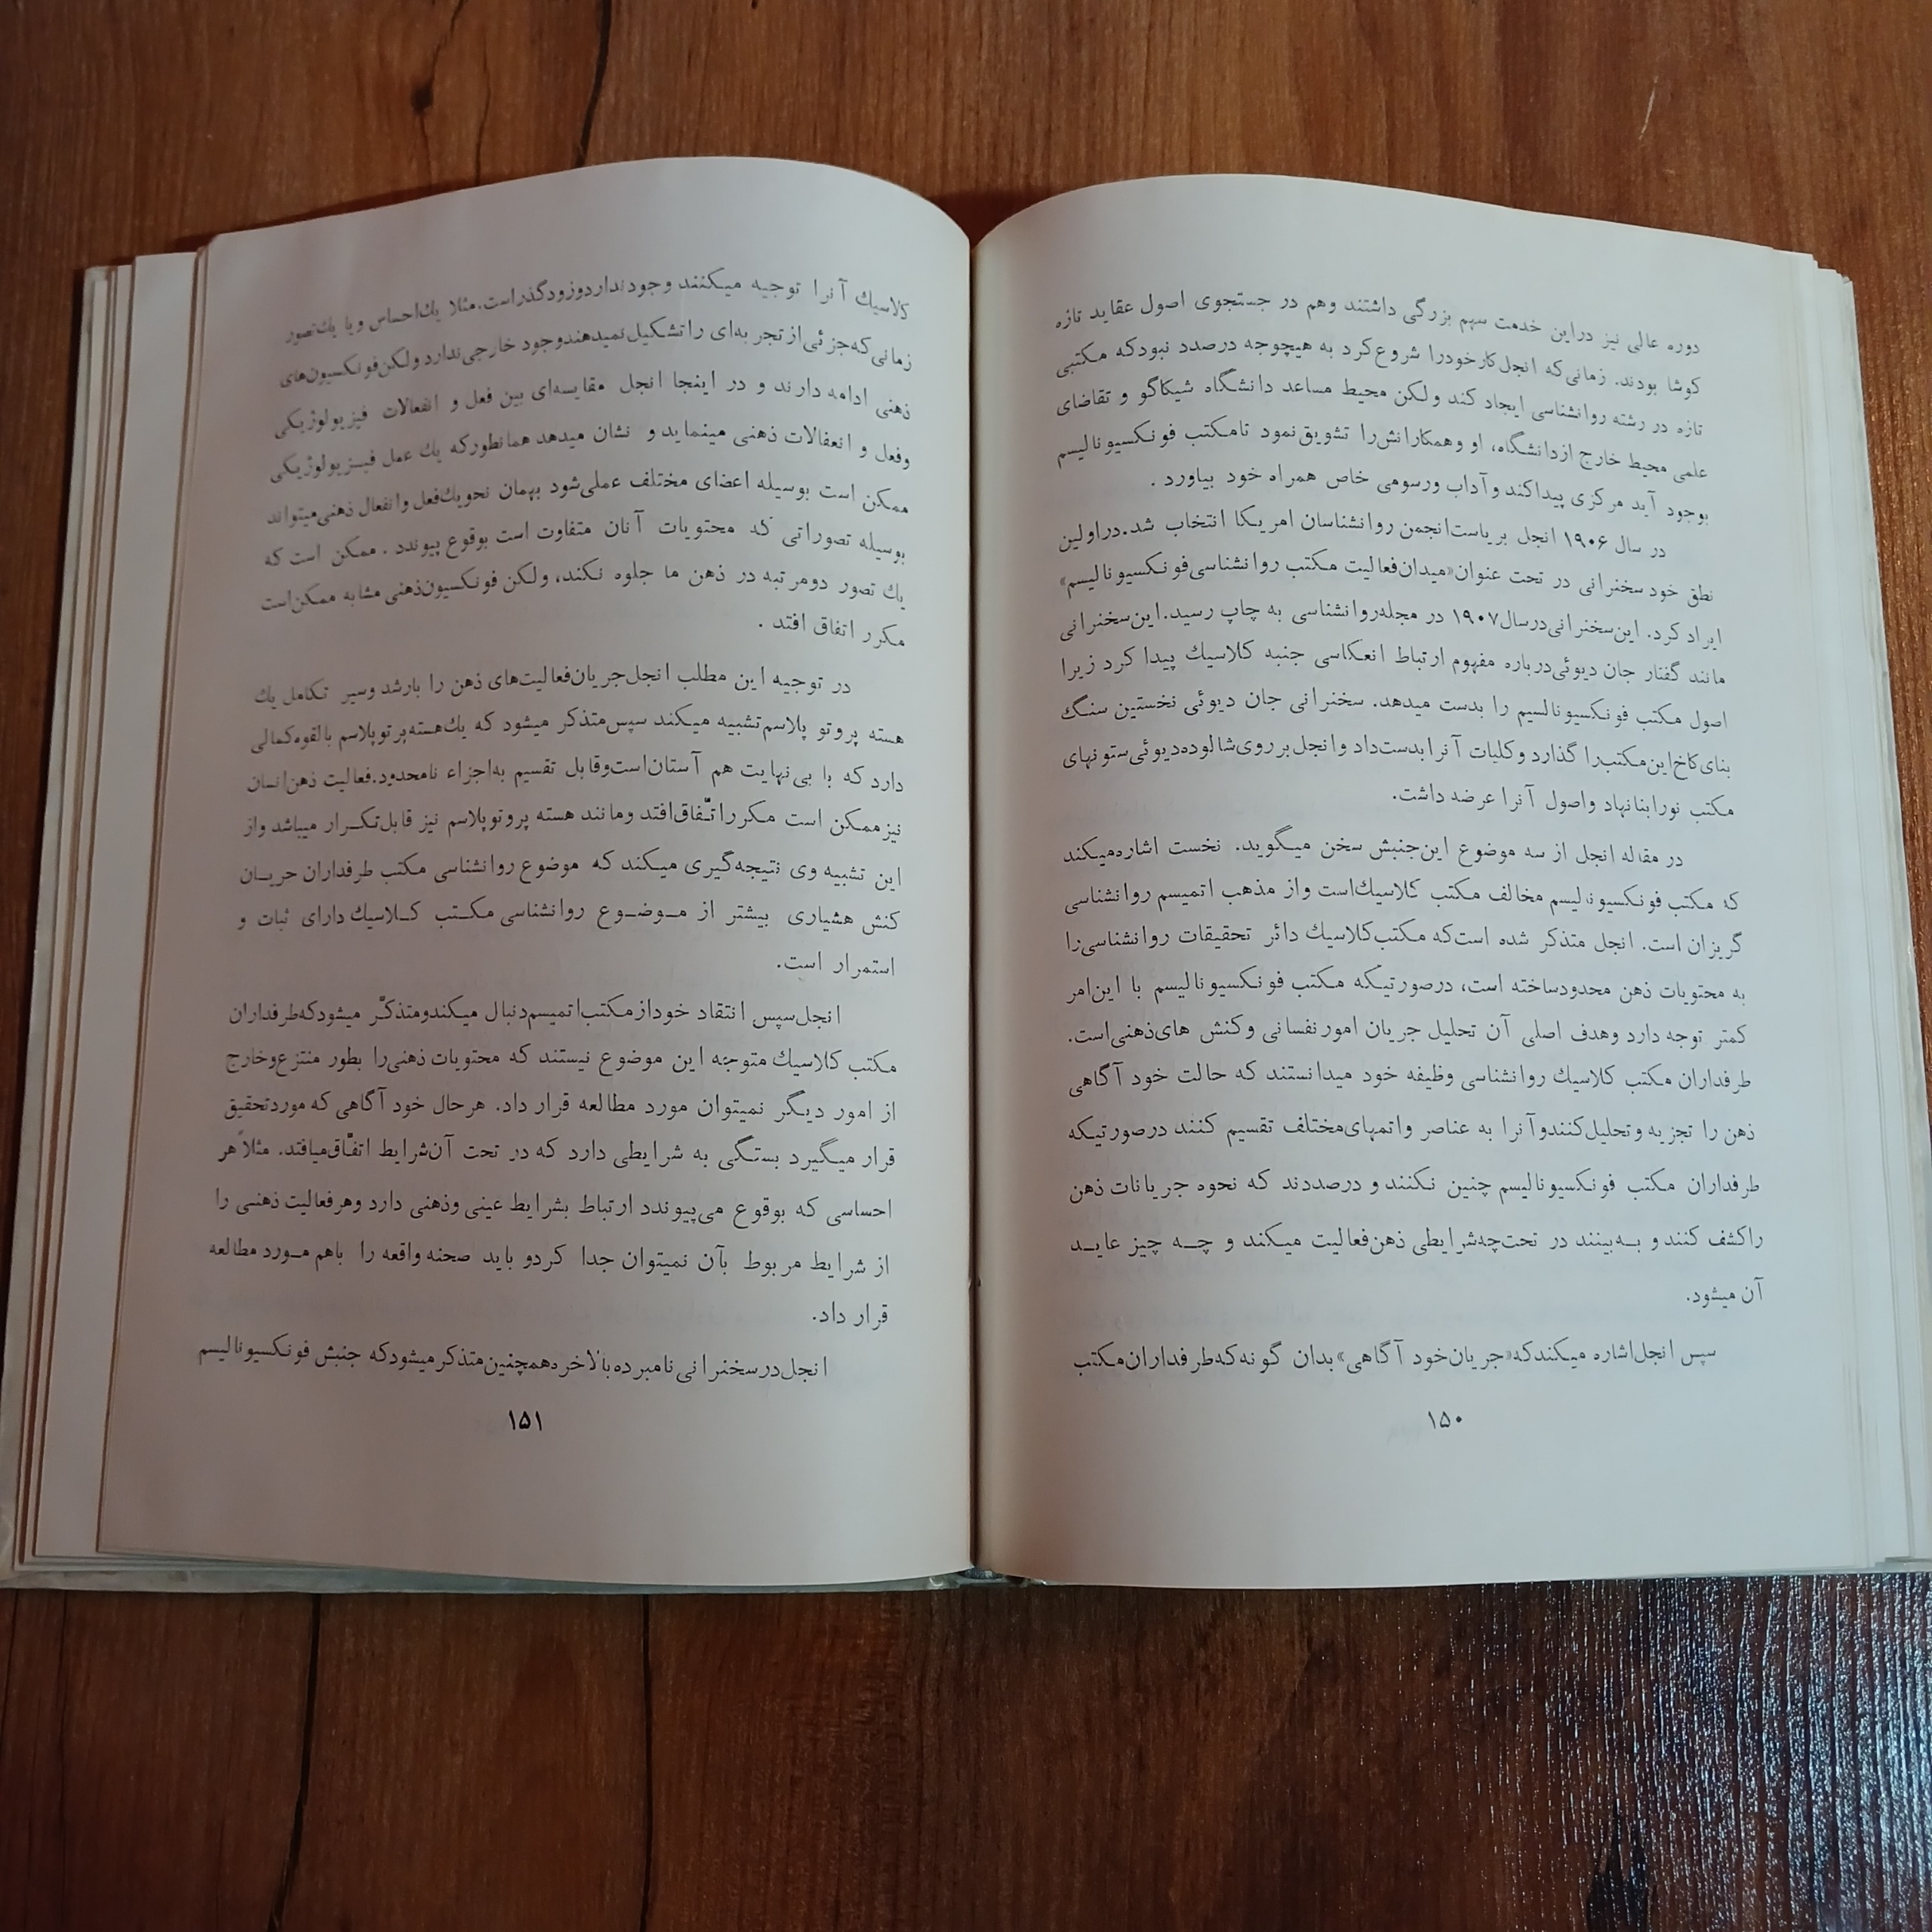 دوره عالی نیز دراین خدمت سهم بزرگی داشتند وهم در جستجوی اصول عقاید تازه
کوشا بودند. زمانی‌که انجل‌کارخودرا شروع‌کرد به هیچوجه درصدد نبودکه مکتبی
تازه در رشته روانشناسی ایجاد کند ولکن محیط مساعد دانشگاه شیکاگو و تقاضای
علمی محیط خارج ازدانشگاه، او وهمکارانش‌را تشویق‌نمود تامکتب فونکسیونالیسم
بوجود آید مرکزی پیداکند وآداب ورسومی خاص همراه خود بیاورد .
در سال ۱۹۰۶ انجل بریاست‌انجمن روانشناسان امریکا انتخاب شد.دراولین
نطق خود سخنرانی در تحت عنوان«میدان‌فعالیت مکتب روانشناسی‌فونکسیونالیسم»
ایراد کرد. این‌سخنرانی‌درسال۱۹۰۷ در مجله‌روانشناسی به چاپ رسید.این‌سخنرانی
مانند گفتار جان دیوئی‌درباره مفهوم ارتباط انعکاسی جنبه کلاسیك پیدا کرد زیرا
اصول مکتب فونکسیونالسیم را بدست میدهد. سخنرانی جان دیوئی نخستین سنگ
بنای‌کاخ‌این‌مکتب‌را گذارد وکلیات آنرابدست‌داد وانجل‌برروی‌شالوده‌دیوئی‌ستونهای
مکتب نورابنانهاد واصول آنرا عرضه داشت.
در مقاله انجل از سه موضوع این‌جنبش سخن میگوید. نخست اشاره‌میکند
که مکتب فونکسیونالیسم مخالف مکتب کلاسیك‌است واز مذهب اتمیسم روانشناسی
گریزان است. انجل متذکر شده است‌که مکتب‌کلاسیك دائر تحقیقات روانشناسی‌را
به محتویات ذهن محدودساخته است، درصورتیکه مکتب فونکسیونالیسم با این‌امر
کمتر توجه دارد وهدف اصلی آن تحلیل جریان امورنفسانی وکنش های‌ذهنی‌است.
طرفداران مکتب کلاسیك روانشناسی وظیفه خود میدانستند که حالت خود آگاهی
ذهن را تجزیه وتحلیل‌کنندوآنرا به عناصر واتمهای‌مختلف تقسیم کنند درصورتیکه
طرفداران مکتب فونکسیونالیسم چنین نکنند و درصددند که نحوه جریانات ذهن
راکشف کنند و بــه‌بینند در تحت‌چه‌شرایطی ذهن‌فعالیت میکند و چــه چیز عایــد
آن میشود.
سپس انجل‌اشاره میکندکه«جریان‌خود آگاهی»بدان گونه‌که‌طرفداران‌مکتب
۱۵۰
کلاسیك آنرا توجیه میکنند وجودنداردوزودگذراست.مثلا یك‌احساس ویا یك‌تصور
زمانی‌که‌جزئی‌ازتجربه‌ای راتشکیل‌نمیدهندوجود خارجی‌ندارد ولکن‌فونکسیون‌های
ذهنی ادامه دارند و در اینجا انجل مقایسه‌ای بین فعل و انفعالات فیزیولوژیکی
وفعل و انعفالات ذهنی مینماید و نشان میدهد همانطورکه یك عمل فیــزیولوژیکی
ممکن است بوسیله اعضای مختلف عملی‌شود بهمان نحویك‌فعل وانفعال ذهنی‌میتواند
بوسیله تصوراتی که محتویات آنان متفاوت است بوقوع پیوندد . ممکن است که
یك تصور دومرتبه در ذهن ما جلوه نکند، ولکن فونکسیون‌ذهنی مشابه ممکن‌است
مکرر اتفاق افتد .
در توجیه این مطلب انجل‌جریان‌فعالیت‌های ذهن را بارشد وسیر تکامل یك
هسته پروتو پلاسم‌تشبیه میکند سپس‌متذکر میشود که یك‌هسته‌پرتوپلاسم بالقوه‌کمالی
دارد که با بی‌نهایت هم آستان‌است‌وقابل تقسیم به‌اجزاء نامحدود.فعالیت ذهن‌انسان
نیزممکن است مکرراتّفاق‌افتد ومانند هسته پروتوپلاسم نیز قابل‌تکــرار میباشد واز
این تشبیه وی نتیجه‌گیری میکند که موضوع روانشناسی مکتب طرفداران جریــان
کنش هشیاری بیشتر از مــوضــوع روانشناسی مکــتب کــلاسیك دارای ثبات و
استمرار است.
انجل‌سپس انتقاد خودازمکتب‌اتمیسم‌دنبال میکندومتذکّر میشودکه‌طرفداران
مکتب کلاسیك متوجه این موضوع نیستند که محتویات ذهنی‌را بطور منتزع‌وخارج
از امور دیگر نمیتوان مورد مطالعه قرار داد. هرحال خود آگاهی که موردتحقیق
قرار میگیرد بستگی به شرایطی دارد که در تحت آن‌شرایط اتفّاق‌میافتد. مثلاً هر
احساسی که بوقوع می‌پیوندد ارتباط بشرایط عینی وذهنی دارد وهرفعالیت ذهنی را
از شرایط مربوط بآن نمیتوان جدا کردو باید صحنه واقعه را باهم مــورد مطالعه
قرار داد.
انجل‌درسخنرانی‌نامبرده‌بالاخره‌همچنین‌متذکرمیشودکه جنبش فونکسیونالیسم
۱۵۱